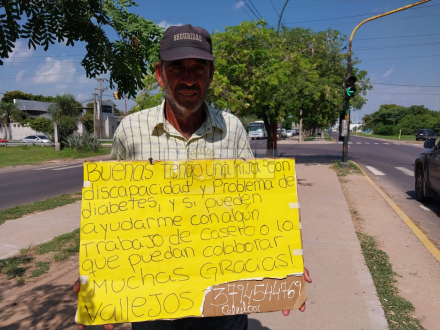 SEGURIDAD
Buenas Tengo una hija con
discapacidad y Problema de
diabetes, y si pueden
ayudarme con algún
Trabajo de casero o lo
que puedan colaborar
Muchas Gracias!
Vallejos
3794544769